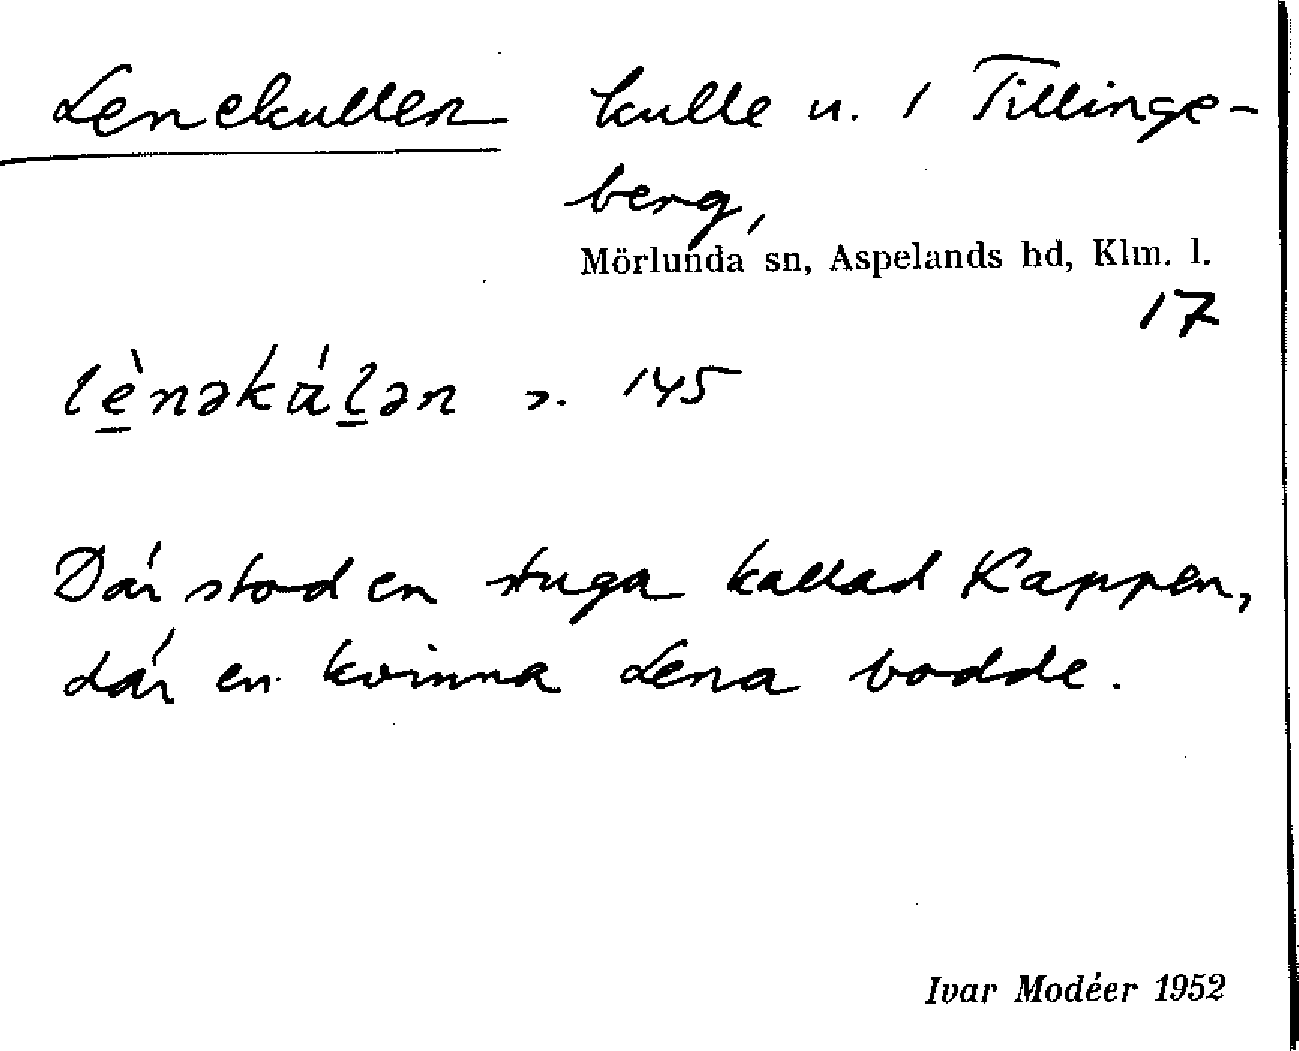 Lenekullen kulle u. 1 Tillinge-
berg,
Mörlunda sn, Aspelands hd, Klm. l.
17
lè̱nəkáḻən s. 145
Där stod en stuga kallad Kappen,
där en kvinna Lena bodde.
Ivar Modéer 1952